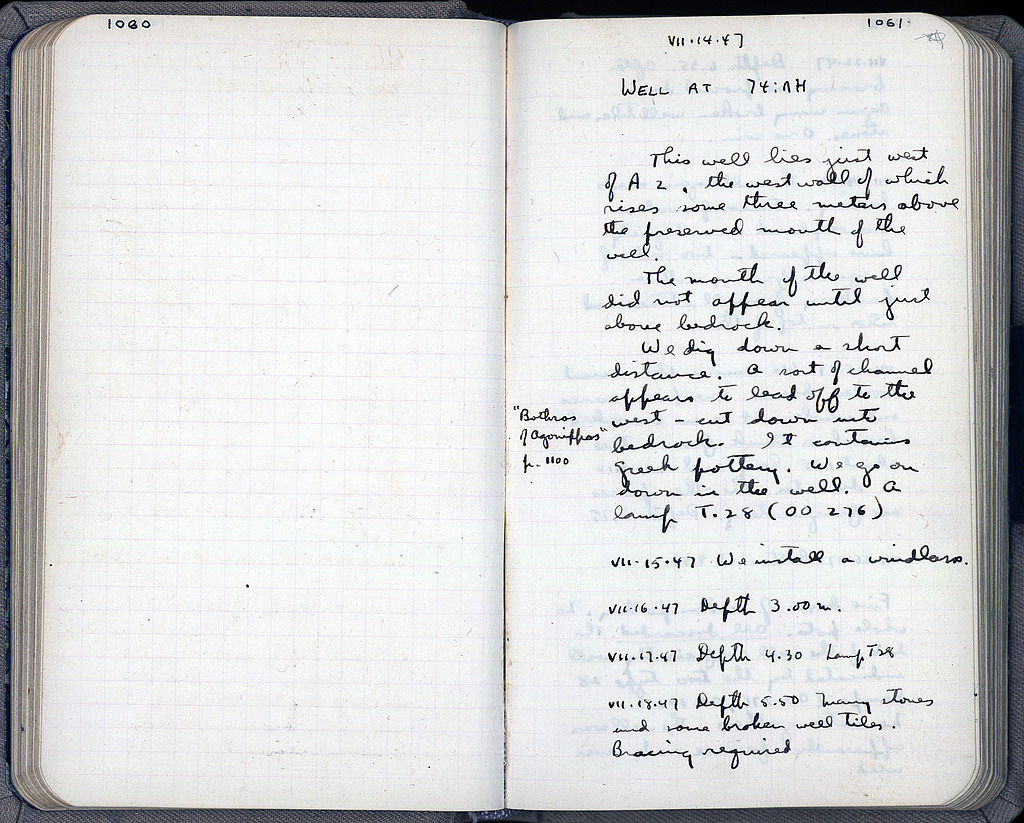 1060
1061
VII·14·47
WELL AT 74:ΛH
This well lies just west
of A 2, the west wall of which
rises some three meters above
the preserved mouth of the
well.
The mouth of the well
did not appear until just
above bedrock.
We dig down a short
distance. A sort of channel
appears to lead off to the
west – cut down into
bedrock. It contains
Greek pottery. We go on
down in the well. A
lamp T.28 (OO 276)
"Bothros
of Agonippos"
p. 1100
VII·15·47 We install a windlass.
VII·16·47 Depth 3.00 m.
VII·17·47 Depth 4.30 Lamp T28
VII·18·47 Depth 5.50 Many stones
and some broken well tiles.
Bracing required